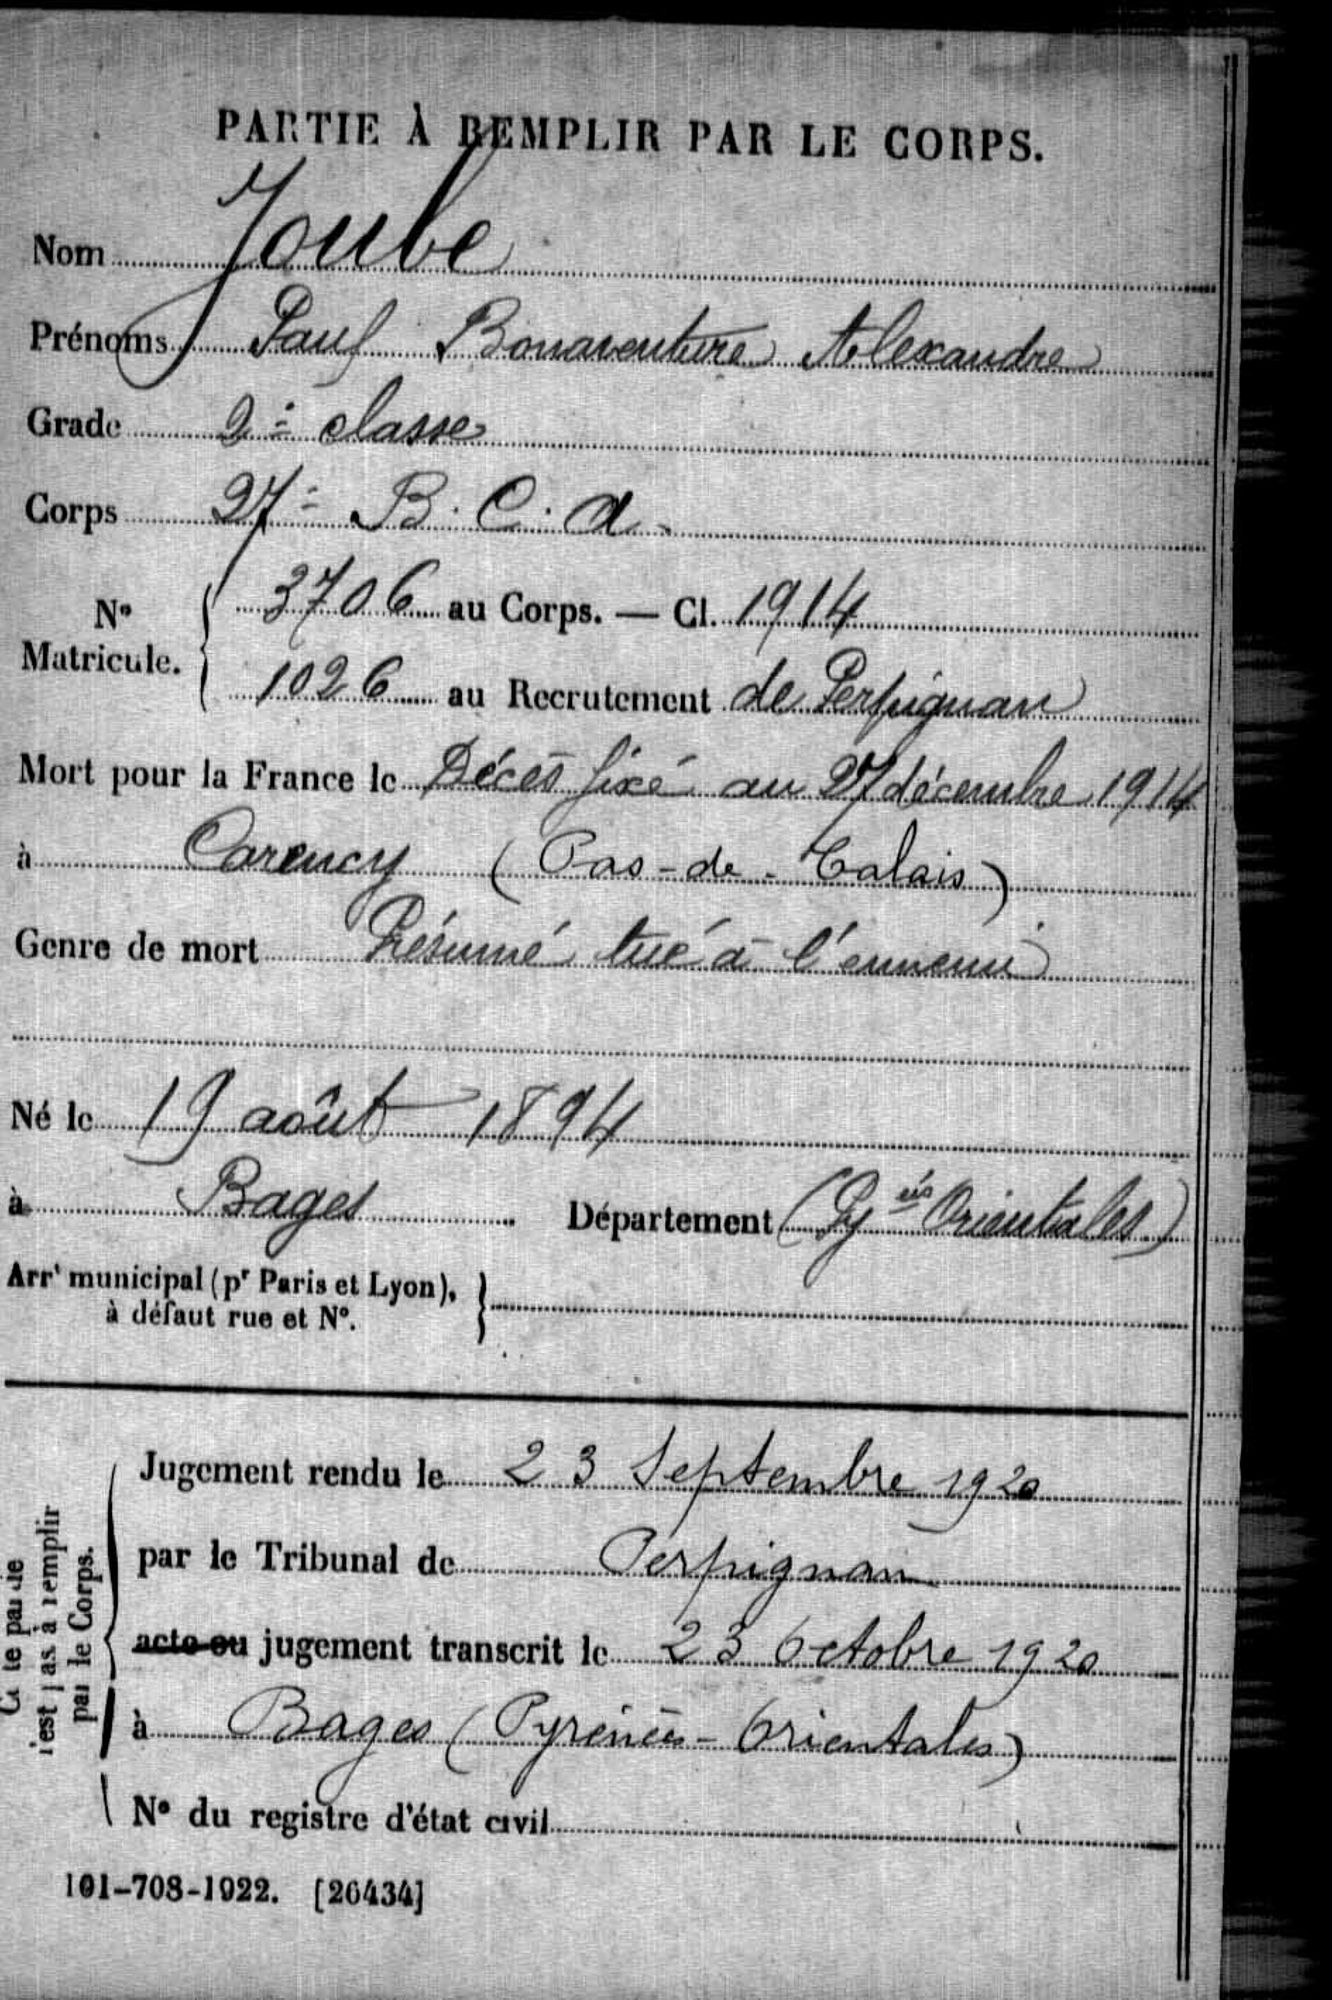 PARTIE À REMPLIR PAR LE CORPS.
Nom Joube
Prénoms Paul Bonaventure Alexandre
Grade 2e classe
Corps 27e B.C.A.
No Matricule. 3706 au Corps. — Cl. 1914
1026 au Recrutement de Perpignan
Mort pour la France le Décès fixé au 27 décembre 1914
à Carency (Pas-de-Calais)
Genre de mort Présumé tué à l'ennemi
Né le 19 août 1894
à Bages Département (Pyées Orientales)
Arrt municipal (pr Paris et Lyon),
à défaut rue et No.
Cette partie
n'est pas à remplir
par le Corps.
Jugement rendu le 23 Septembre 1920
par le Tribunal de Perpignan
acte ou jugement transcrit le 23 Octobre 1920
à Bages (Pyrénées-Orientales)
No du registre d'état civil
101-708-1922. [26434]